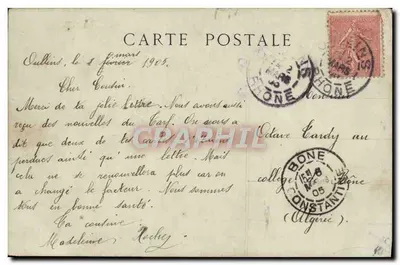 CARTE POSTALE
Oullins, le 2 mars février 1905
Cher Cousin
Merci de ta jolie lettre. Nous avons aussi
reçu des nouvelles du Tarf. On nous a
dit que deux de tes cartes
perdues ainsi qu'une lettre. Mais
cela ne se renouvellera plus car on
a changé le facteur. Nous sommes
tous en bonne santé.
Ta cousine
Madeleine Rochez
Octave Tardy au
collège Bône
(Algérie)
RHONE
RHONE
BONE
05
CONSTANTINE
CARPHIL